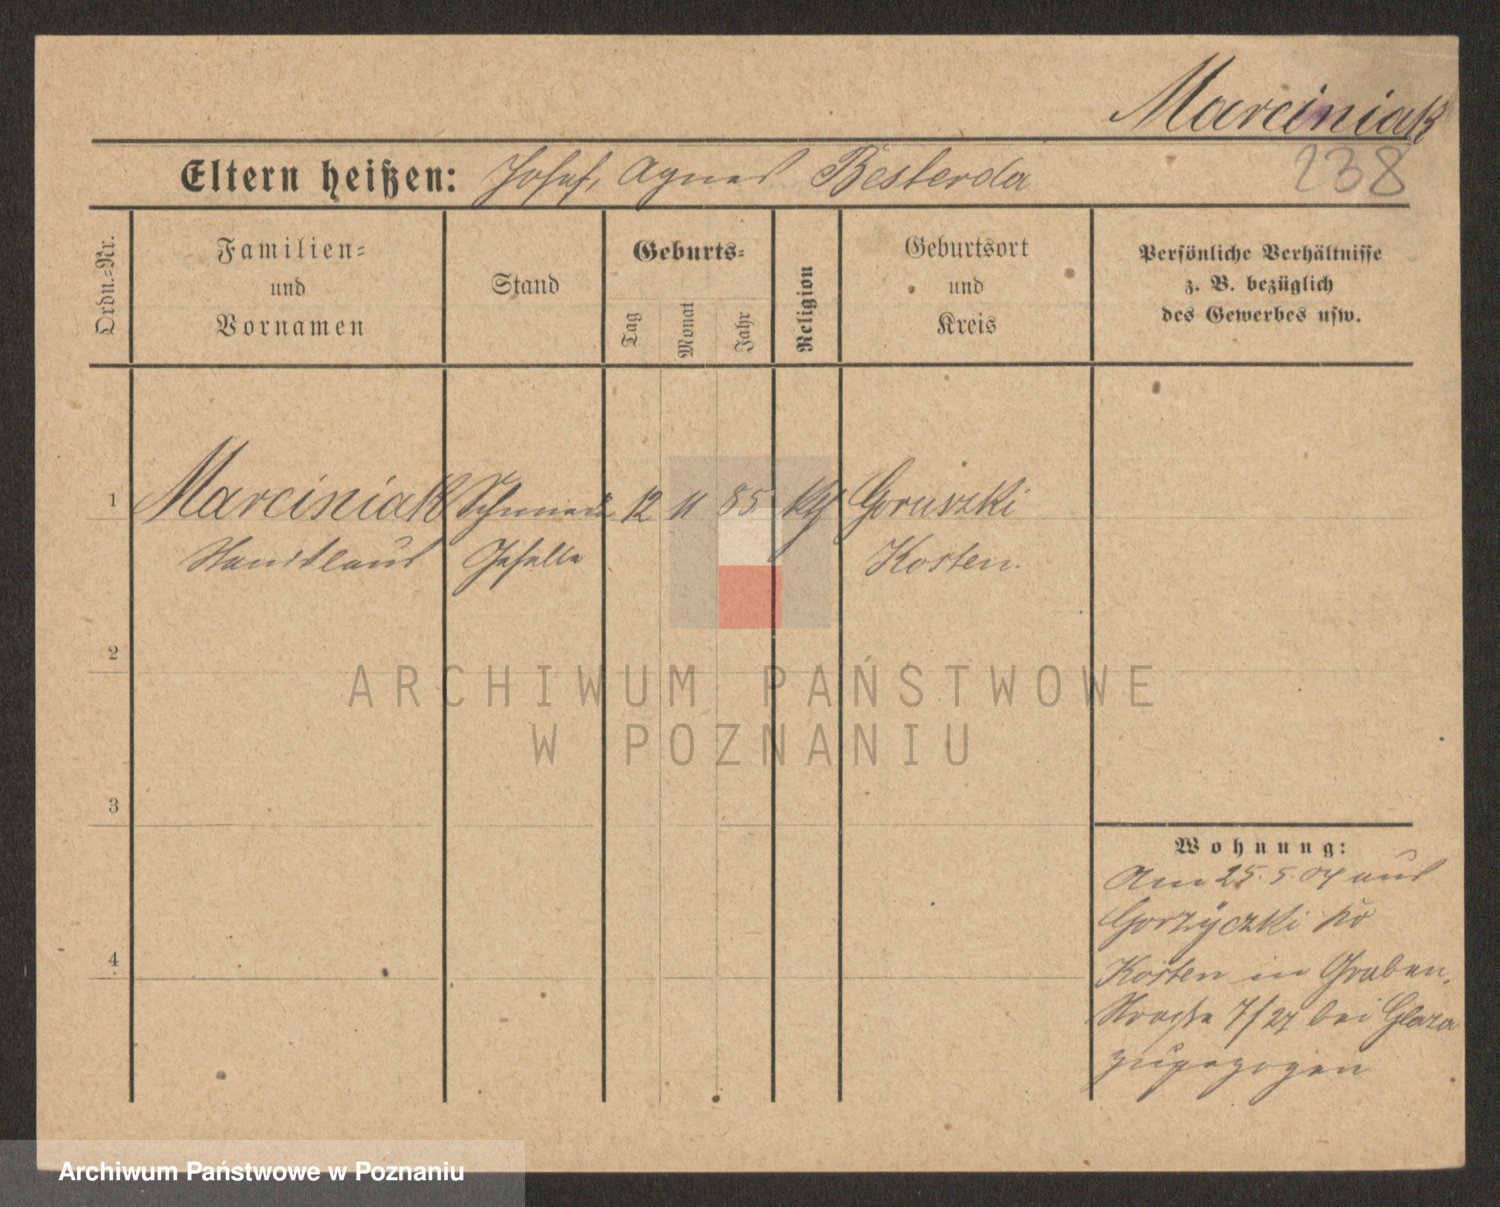 Marciniak
238
Eltern heißen: Josef, Agnes Besterda
Ordn.-Nr.
Familien-
und
Vornamen
Stand
Geburts-
Tag
Monat
Jahr
Religion
Geburtsort
und
Kreis
Persönliche Verhältnisse
z. B. bezüglich
des Gewerbes usw.
1 Marciniak Schmiede 12 11 85 kth Goruszki
Stanislaus Geselle Kosten.
2
3
4
Wohnung:
Am 25. 5. 04 aus
Gorzyczki Kr
Kosten in Graben,
Straße 7/27 bei Glaza
zugezogen
ARCHIWUM PAŃSTWOWE
W POZNANIU
Archiwum Państwowe w Poznaniu